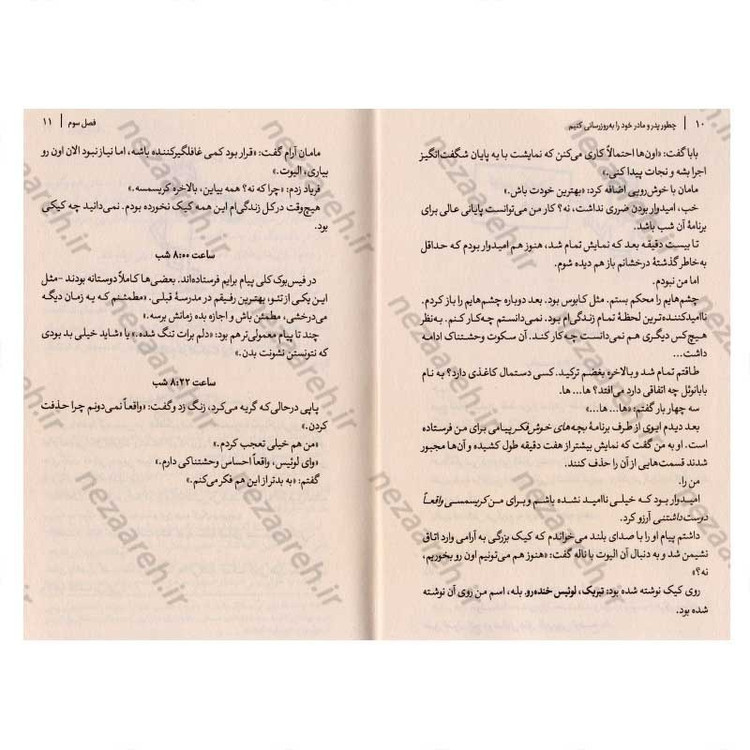 ۱۰ | چطور پدر و مادر خود را به‌روزرسانی کنیم
بابا گفت: «اون‌ها احتمالاً کاری می‌کنن که نمایشت با یه پایان شگفت‌انگیز
اجرا بشه و نجات پیدا کنی.»
مامان با خوش‌رویی اضافه کرد: «بهترین خودت باش.»
خب، امیدوار بودن ضرری نداشت، نه؟ کار من می‌توانست پایانی عالی برای
برنامهٔ آن شب باشد.
تا بیست دقیقه بعد که نمایش تمام شد، هنوز هم امیدوار بودم که حداقل
به‌خاطر گذشتهٔ درخشانم باز هم دیده شوم.
اما من نبودم.
چشم‌هایم را محکم بستم. مثل کابوس بود. بعد دوباره چشم‌هایم را باز کردم.
ناامیدکننده‌ترین لحظهٔ تمام زندگی‌ام بود. نمی‌دانستم چه‌کار کنم. به‌نظر
هیچ‌کس دیگری هم نمی‌دانست چه‌کار کند. آن سکوت وحشتناک ادامه
داشت...
طاقتم تمام شد و بالاخره بغضم ترکید. کسی دستمال کاغذی دارد؟ به نام
بابانوئل چه اتفاقی دارد می‌افتد؟ ها... ها.
سه چهار بار گفتم: «ها... ها...»
بعد دیدم ایوی از طرف برنامهٔ بچه‌های خوش‌فکر پیامی برای من فرستاده
است. او به من گفت که نمایش بیشتر از هفت دقیقه طول کشیده و آن‌ها مجبور
شدند قسمت‌هایی از آن را حذف کنند.
من را.
امیدوار بود که خیلی ناامید نشده باشم و برای من کریسمسی واقعاً
دوست‌داشتنی آرزو کرد.
داشتم پیام او را با صدای بلند می‌خواندم که کیک بزرگی به آرامی وارد اتاق
نشیمن شد و به دنبال آن الیوت با ناله گفت: «هنوز هم می‌تونیم اون رو بخوریم،
نه؟»
روی کیک نوشته شده بود: تبریک، لوئیس خنده‌رو. بله، اسم من روی آن نوشته
شده بود.
فصل سوم | ۱۱
مامان آرام گفت: «قرار بود کمی غافلگیرکننده باشه، اما نیاز نبود الان اون رو
بیاری، الیوت.»
فریاد زدم: «چرا که نه؟ همه بیاین، بالاخره کریسمسه.»
هیچ‌وقت در کل زندگی‌ام این همه کیک نخورده بودم. نمی‌دانید چه کیکی
بود.
ساعت ۸:۰۰ شب
در فیس‌بوک کلی پیام برایم فرستاده‌اند. بعضی‌ها کاملاً دوستانه بودند -مثل
این یکی از تئو، بهترین رفیقم در مدرسهٔ قبلی. «مطمئنم که یه زمان دیگه
می‌درخشی، مطمئن باش و اجازه بده زمانش برسه.»
چند تا پیام معمولی‌تر هم بود: «دلم برات تنگ شده.» یا «شاید خیلی بد بودی
که نتونستن نشونت بدن.»
ساعت ۸:۲۲ شب
پاپی درحالی‌که گریه می‌کرد، زنگ زد و گفت: «واقعاً نمی‌دونم چرا حذفت
کردن.»
«من هم خیلی تعجب کردم.»
«وای لوئیس، واقعاً احساس وحشتناکی دارم.»
گفتم: «به بدتر از این هم فکر می‌کنم.»
nezaareh.ir